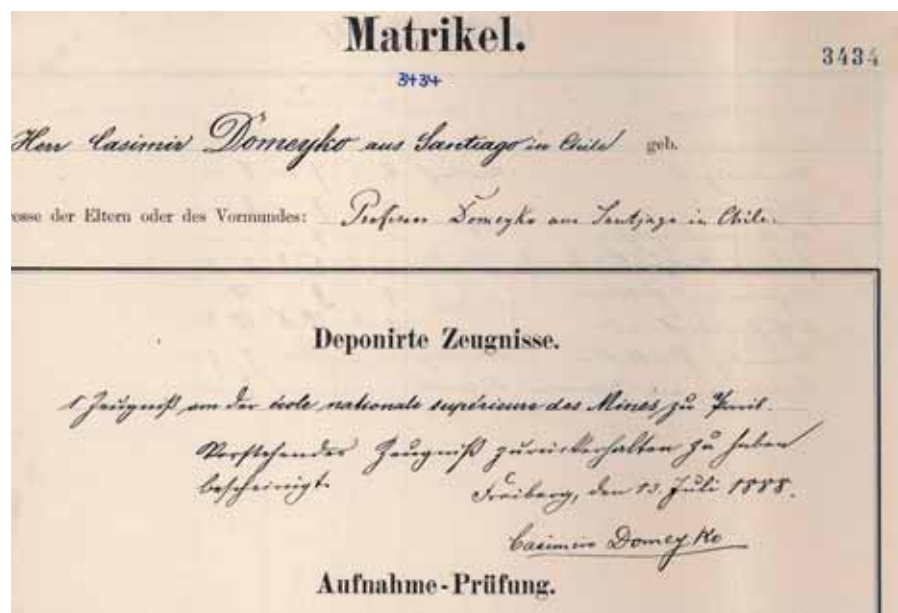 Matrikel.
3434
3434
Herr Casimir Domeyko aus Santiago in Chile geb.
esse der Eltern oder des Vormundes: Professor Domeyko aus Santjago in Chile.
Deponirte Zeugnisse.
1 Zeugniß von der école nationale supérieure des Mines zu Paris.
Vorstehendes Zeugniß zurückerhalten zu haben
bescheinigt. Freiberg, den 13. Juli 1888.
Casimiro Domeyko
Aufnahme-Prüfung.